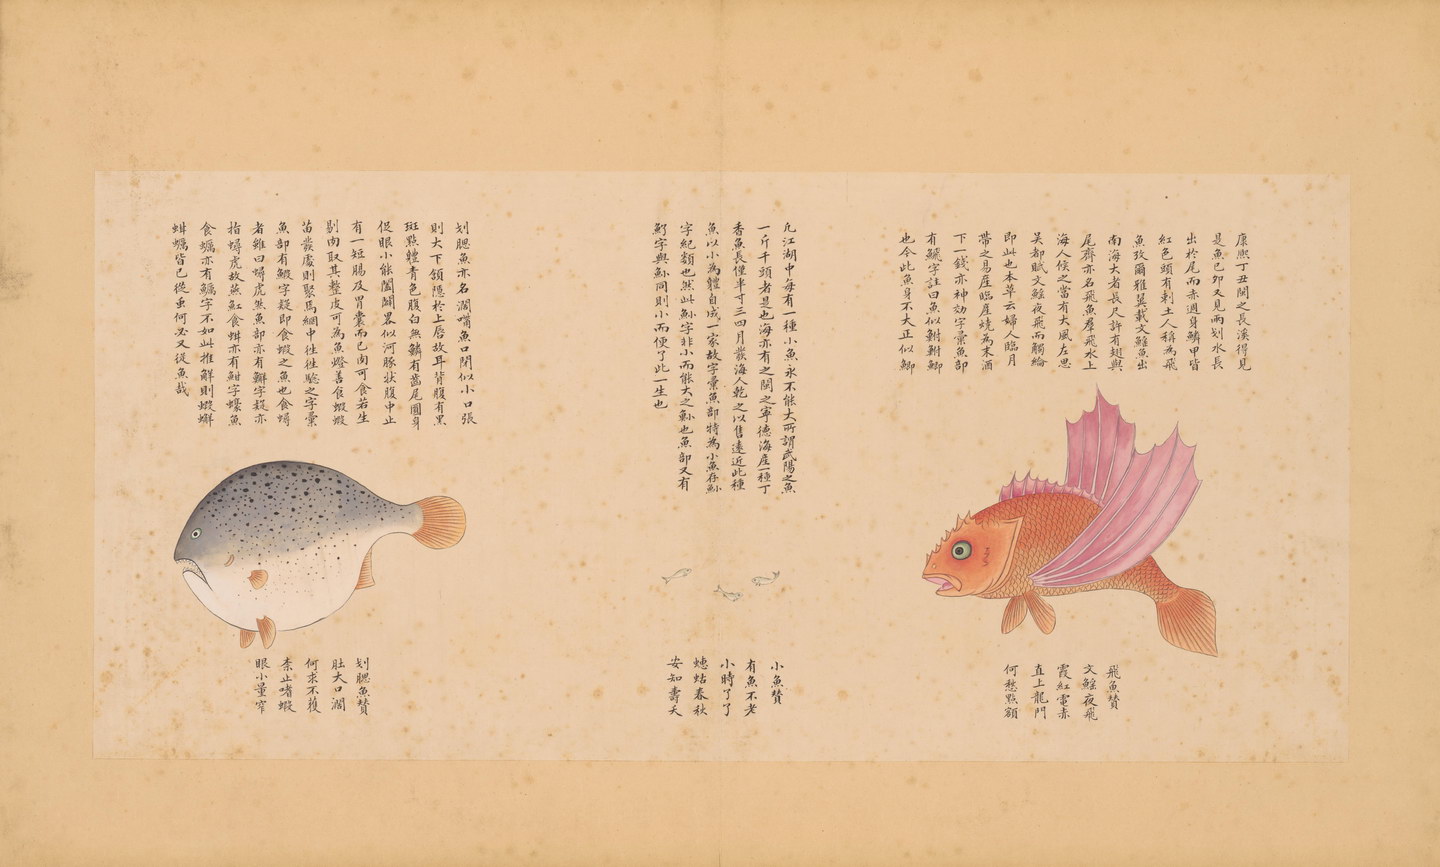 康熙丁丑閩之長溪得見
是魚己卯又見兩划水長
出於尾而赤週身鱗甲皆
紅色頭有刺土人稱為飛
魚攷爾雅翼載文鰩魚出
南海大者長尺許有翅與
尾齊亦名飛魚羣飛水上
海人候之當有大風左思
吳都賦文鰩夜飛而觸綸
即此也本草云婦人臨月
帶之易産臨産燒為末酒
下一錢亦神効字彙魚部
有字註曰魚似鮒鮒鯽
也今此魚身不大正似鯽
飛魚贊
文鰩夜飛
霞紅電赤
直上龍門
何愁點額
凡江湖中每有一種小魚永不能大所謂武陽之魚
一斤千頭者是也海亦有之閩之寧德海産一種丁
香魚長僅半寸三四月發海人乾之以售遠近此種
魚以小為體自成一家故字彙魚部特為小魚存魦
字紀類也然此魦字非小而能大之魦也魚部又有
字與魦同則小而便了此一生也
小魚贊
有魚不老
小時了了
蟪蛄春秋
安知壽夭
划腮魚亦名濶嘴魚口閉似小口張
則大下頷隱於上唇故耳背腹有黑
斑點體青色腹白無鱗有齒尾圓身
促眼小能闔闢畧似河豚狀腹中止
有一短腸及胃囊而已肉可食若生
剔肉取其整皮可為魚燈善食蝦蝦
苗發處則聚焉網中徃徃騐之字彙
魚部有鰕字疑即食蝦之魚也食蟳
者雖曰蟳虎然魚部亦有字疑亦
指蟳虎故燕魟食蚶亦有魽字蠔魚
食蠣亦有鱱字不如此推解則蝦蠏
蚶蠣皆已從虫何必又從魚哉
划腮魚贊
肚大口濶
何求不獲
柰止嗜蝦
眼小量窄